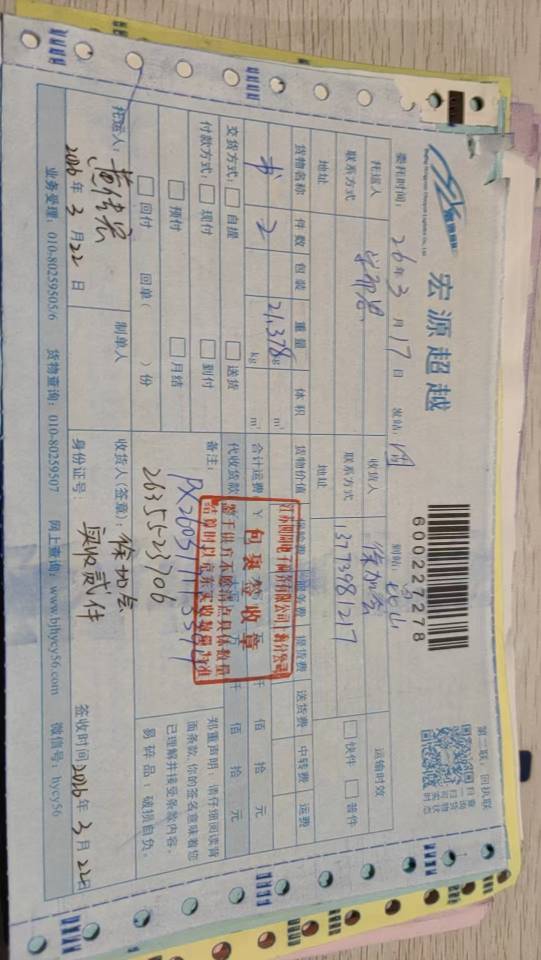 宏源超越
6002227278
第二联：回执联
委托时间：26年3月17日 发站：
到站：
运输时效
托运人
收货人
联系方式
联系方式 13773981217
快件 普件
地址
地址
货物名称 件数 包装 重量 体积 货物价值 提货费 送货费 中转费 运费
书 2 21.378kg m³
合计运费 ¥ 仟 佰 拾 元
交货方式： 自提 送货
代收货款 仟 佰 拾 元
付款方式： 现付 到付
预付 月结
回付 回单（ ）份
备注：
26355-23706
包裹签收章
鉴于供方不愿清点具体数量
郑重声明：请仔细阅读背
面条款，你的签名意味着您
已理解并接受条款内容。
易碎品：破损自负。
托运人：
制单人
收货人(签章)：
2026年3月22日
身份证号：
实收贰件
签收时间 2026年3月22日
业务受理：010-80259505/6 货物查询：010-80259507 网上查询：www.bjhycy56.com 微信号：hycy56